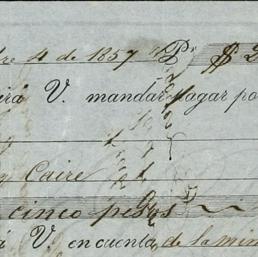 re 4 de 1857 Pr $ 2
irá V. mandar pagar po
Caire
cinco pesos
á V. en cuenta de la min